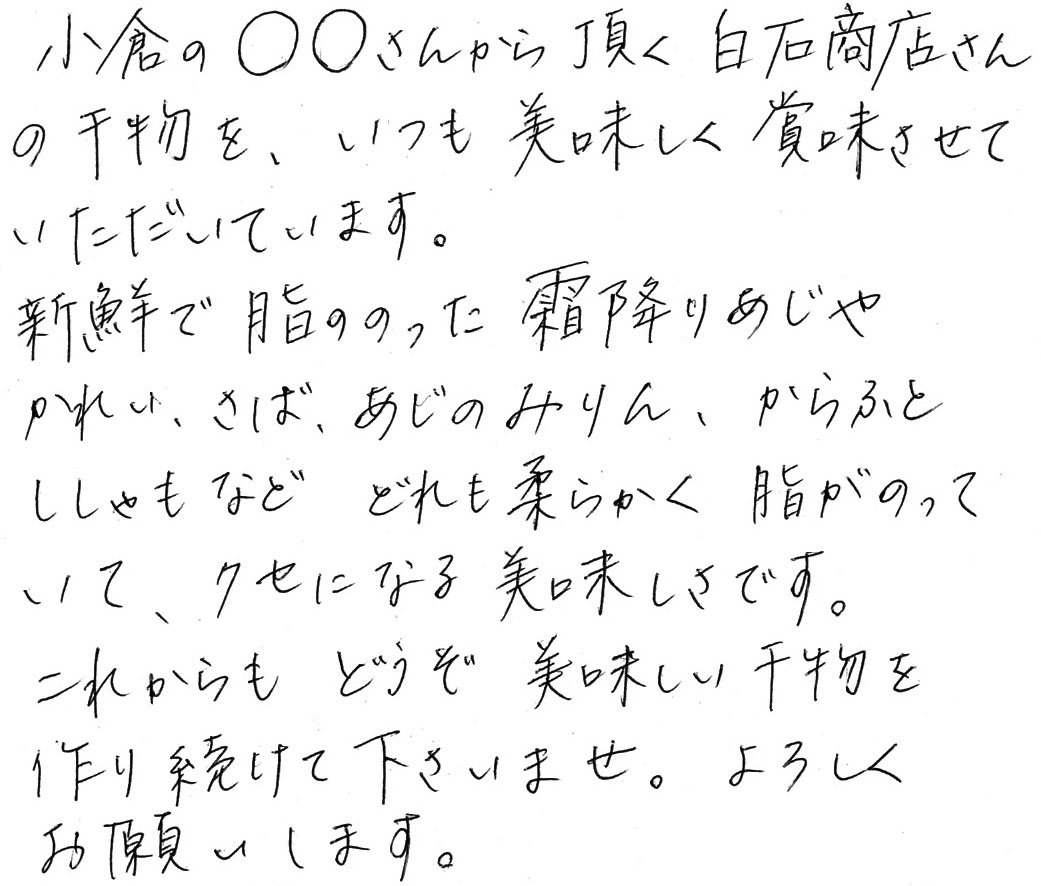 小倉の〇〇さんから頂く白石商店さん
の干物を、いつも美味しく賞味させて
いただいています。
新鮮で脂ののった霜降りあじや
かれい、さば、あじのみりん、からふと
ししゃもなど どれも柔らかく脂がのって
いて、クセになる美味しさです。
これからもどうぞ美味しい干物を
作り続けて下さいませ。よろしく
お願いします。